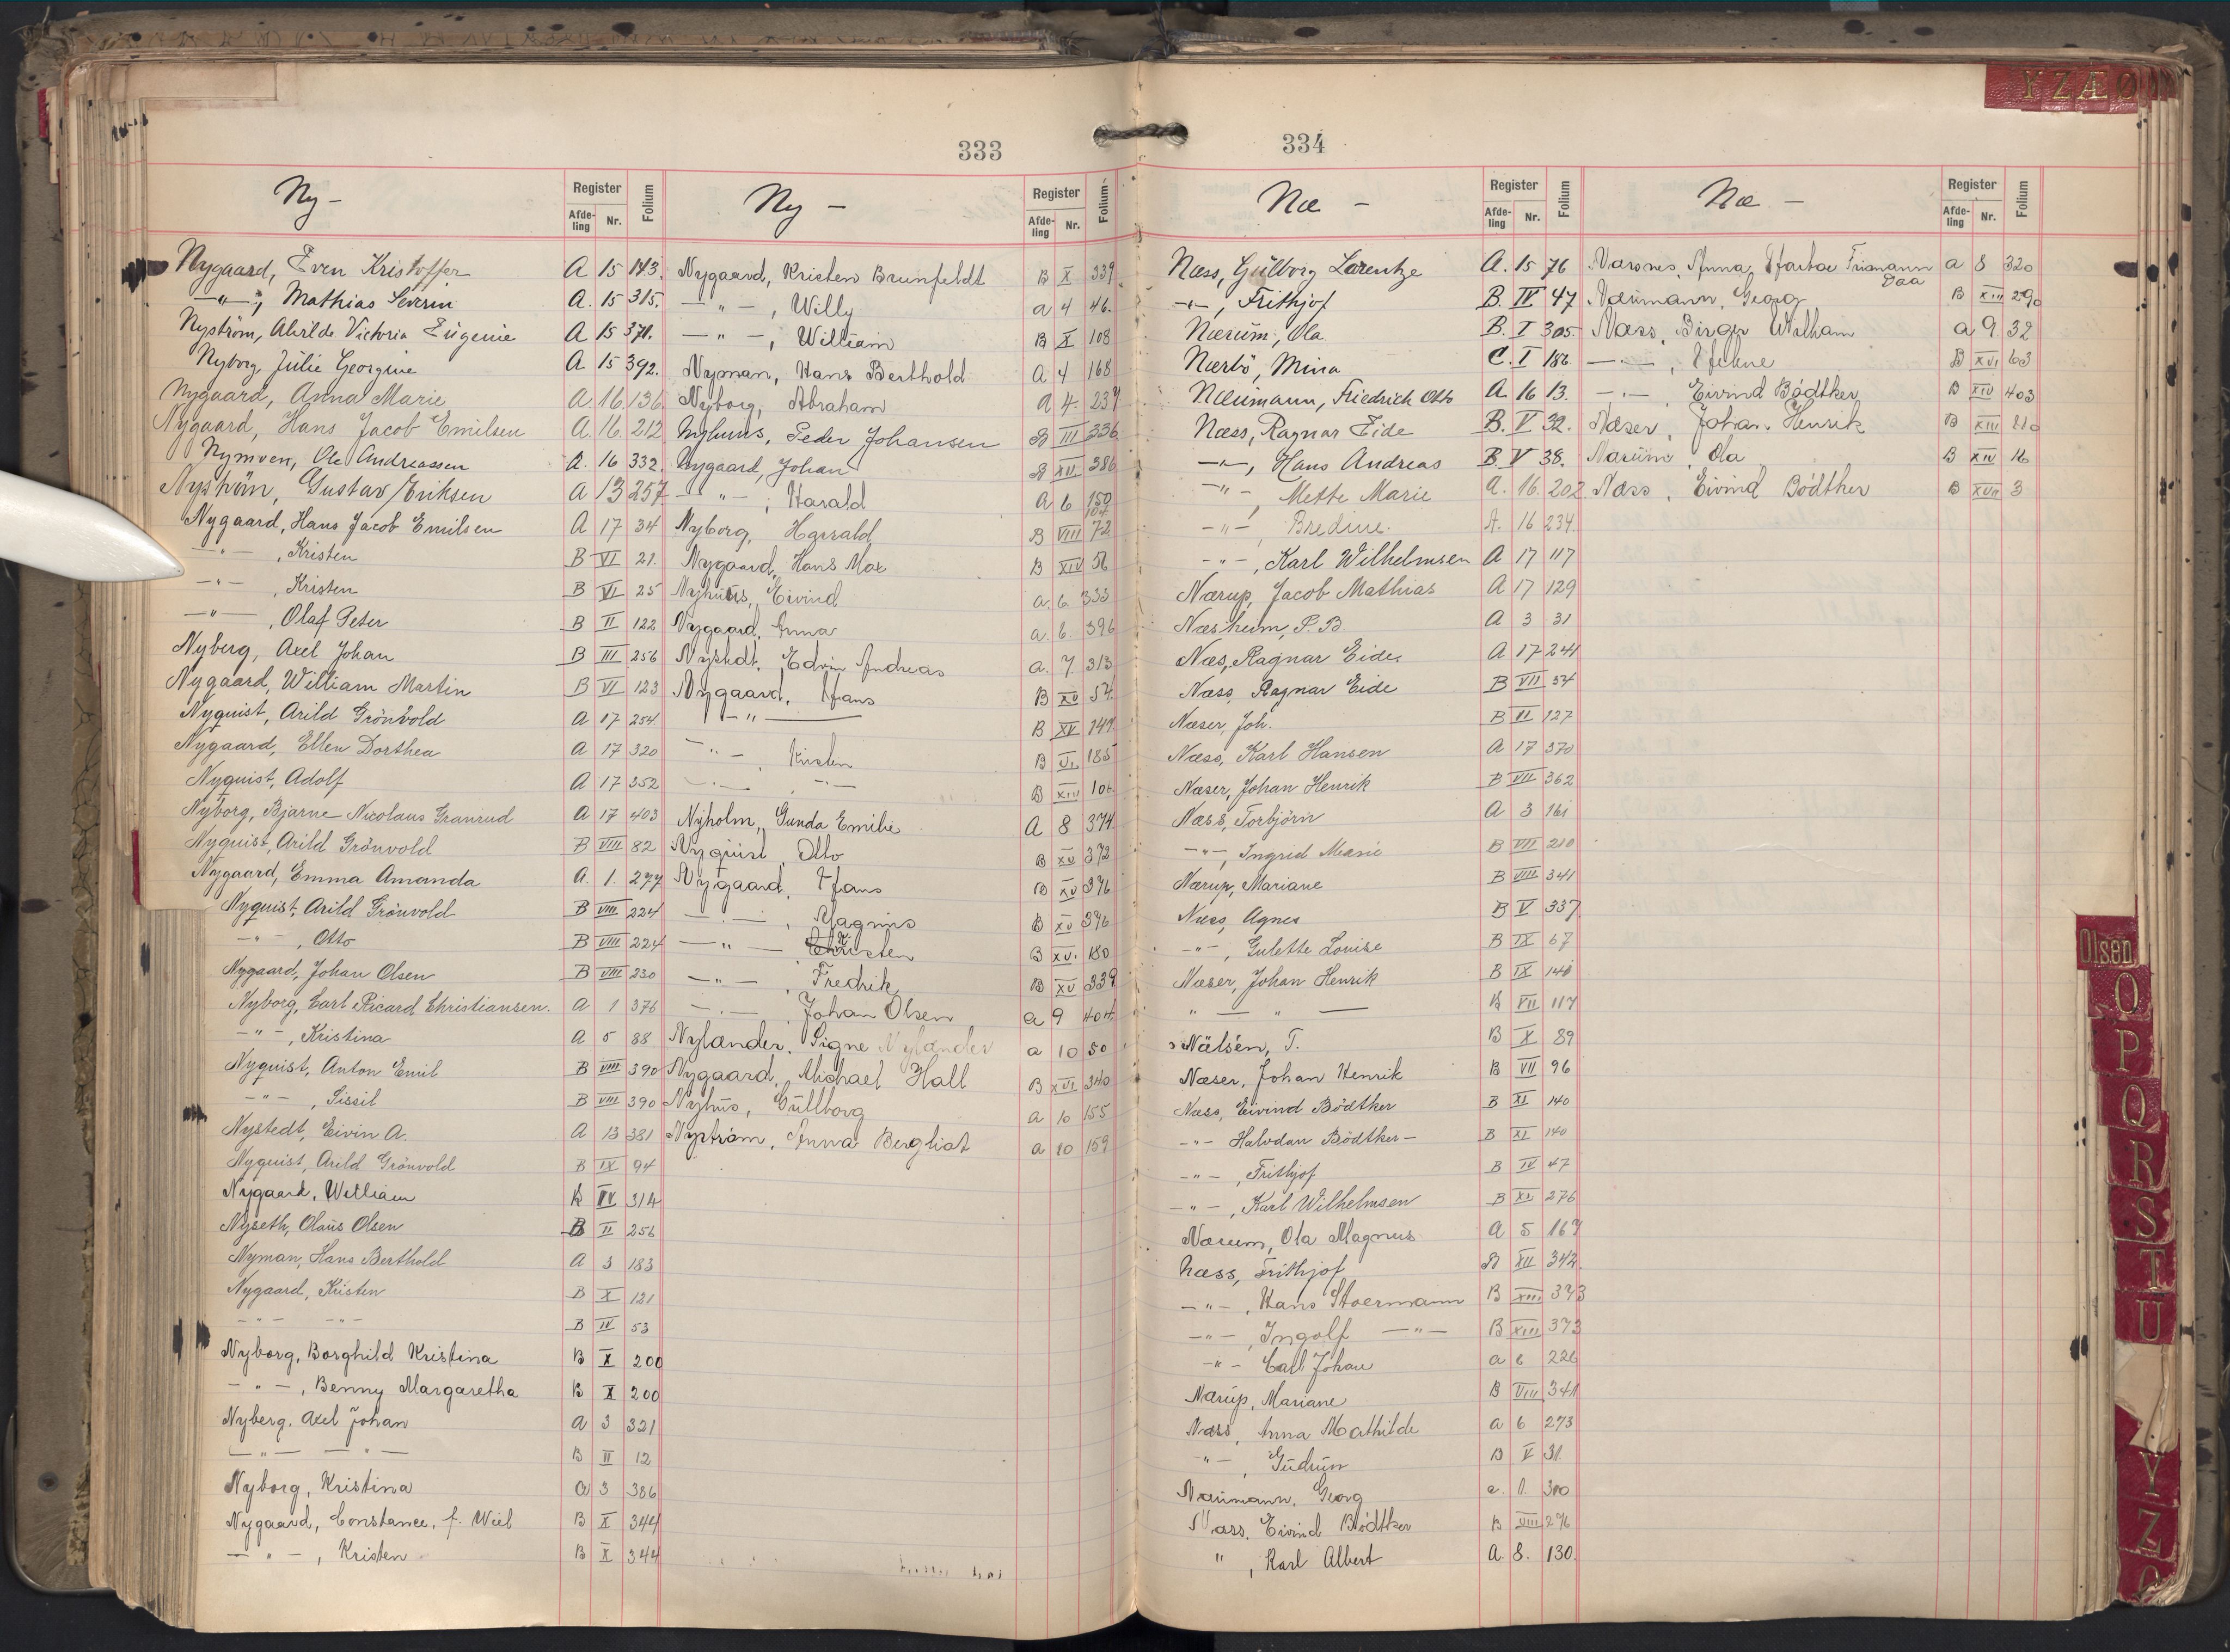 333
Ny-
Register
Afde-ling
Nr.
Folium
Nygaard, Even Kristoffer A 15 143.
—"—, Mathias Severin A. 15 315.
Nyström, Alvilde Victoria Eugenie A 15 371.
Nyborg, Julie Georgine A. 15 392.
Nygaard, Anna Marie A. 16. 136.
Nygaard, Hans Jacob Emilsen A. 16. 212
Nymoen, Ole Andreassen A. 16 332.
Nyström, Gustav Eriksen A 13 257
Nygaard, Hans Jacob Emilsen A 17 34
—"—, Kristen B VI 21.
—"—, Kristen B VI 25
—"—, Olaf Peter B II 122
Nyberg, Axel Johan B III 256
Nygaard, William Martin B VI 123
Nyquist, Arild Grönvold A 17 254
Nygaard, Ellen Dorthea A 17 320
Nyquist, Adolf A 17 352
Nyborg, Bjarne Nicolaus Granrud A 17 403
Nyquist, Arild Grönvold B VIII 82
Nygaard, Emma Amanda A. 1. 277
Nyquist, Arild Grönvold B VIII 224
—"—, Otto B VIII 224
Nygaard, Johan Olsen B VIII 230
Nyborg, Carl Ricard Christiansen. A 1 376
—"—, Kristina A 5 88
Nyquist, Anton Emil B VIII 390
—"—, Sissil B VIII 390
Nystedt, Eivin A. A 13 381
Nyquist, Arild Grönvold B IX 94
Nygaard, William B IV 314
Nyseth, Olaus Olsen B II 256
Nyman, Hans Berthold A 3 183
Nygaard, Kristen B X 121
—"— —"— B IV 53
Nyborg, Borghild Kristina B X 200
—"—, Benny Margaretha B X 200
Nyberg, Axel Johan A 3 321
—"— —"— B II 12
Nyborg, Kristina A 3 386
Nygaard, Constance, f. Wiel B X 344
—"—, Kristen B X 344
Ny-
Register
Afde-ling
Nr.
Folium
Nygaard, Kristen Brunfeldt B X 339
—"—, Willy a 4 46.
—"—, William B X 108
Nyman, Hans Berthold A 4 168
Nyborg, Abraham A 4. 237
Nyhuus, Peder Johansen B III 336
Nygaard, Johan B XII 386
—"—, Harald A 6 150
Nyborg, Harald B VIII 72
Nygaard, Hans Max B XIV 56
Nyhuus, Eivind a. 6. 333
Nygaard, Emma a. 6. 396
Nystedt, Edvin Andreas a. 7. 313
Nygaard, Hans B XV 54.
—"— B XV 147.
—"—, Kristen B VI 185
—"—, —"— B XIII 106
Nyholm, Gunda Emilie A 8 374
Nyquist, Otto B XV 372
Nygaard, Hans B XV 376
—"—, Magnus B XV 376
—"—, Kristen B XVI. 180
—"—, Fredrik B XV 339
—"—, Johan Olsen a 9 404
Nylander, Signe Nylander a 10 50
Nygaard, Michael Hall B XVI 340
Nyhus, Gullborg a 10 155
Nyström, Anna Bergliot a 10 159
334
Næ-
Register
Afde-ling
Nr.
Folium
Næss, Gulborg Lorentze A. 15 76
—"—, Frithjof B. IV 47
Nærum, Ola B. I 305
Nærbö, Mina C. I 186
Næumann, Friedrich Otto A. 16 13.
Næss, Ragnar Eide B. V 32.
—"—, Hans Andreas B. V 38.
—"—, Mette Marie A. 16. 202
—"—, Bredine. A. 16 234.
—"—, Karl Wilhelmsen A 17 117
Nærup, Jacob Mathias A 17 129
Næsheim, P. B. A 3 31
Næs, Ragnar Eide A 17 241
Næss, Ragnar Eide B VII 54
Næser, Joh. B VI 127
Næss, Karl Hansen A 17 370
Næser, Johan Henrik B VII 362
Næss, Torbjörn A 3 161
—"—, Ingrid Marie B VII 210
Nærup, Mariane B VIII 341
Næss, Agnes B V 337
—"—, Gulette Louise B IX 67
Næser, Johan Henrik B IX 141
" — " — B VII 117
Nälsén, T. B X 89
Næser, Johan Henrik B VII 96
Næss, Eivind Bödtker B XI 140
—"— Halvdan Bödtker— B XI 140
—"—, Frithjof B IV 47
—"—, Karl Wilhelmsen B XI 276
Nærum, Ola Magnus A 5 167
Næss, Frithjof B XII 342.
—"—, Hans Stoermann B XIII 373
—"—, Ingolf —"— B XIII 373
—"— Carl Johan a 6 226
Nærup, Mariane B VIII 341
Næss, Anna Mathilde a 6 273
—"—, Gudrun B V 31
Næumann, Georg a. 8. 300
Næss, Eivind Bödtker B VIII 276
", Karl Albert A. 8. 130.
Næ-
Register
Afde-ling
Nr.
Folium
Næsnes, Anna Friemann Daa a 8 320
Næumann, Georg B XIII 290
Næss, Birger William a 9. 32
—"—, Helene B XVI 63
—"—, Eivind Bödtker B XIV 403
Næser, Johan Henrik B XIII 210
Nærum, Ola B XIV 16
Næss, Eivind Bödtker B XVII 3
YZÆØ
Olsen
O
P
Q
R
S
T
U
Y
Z